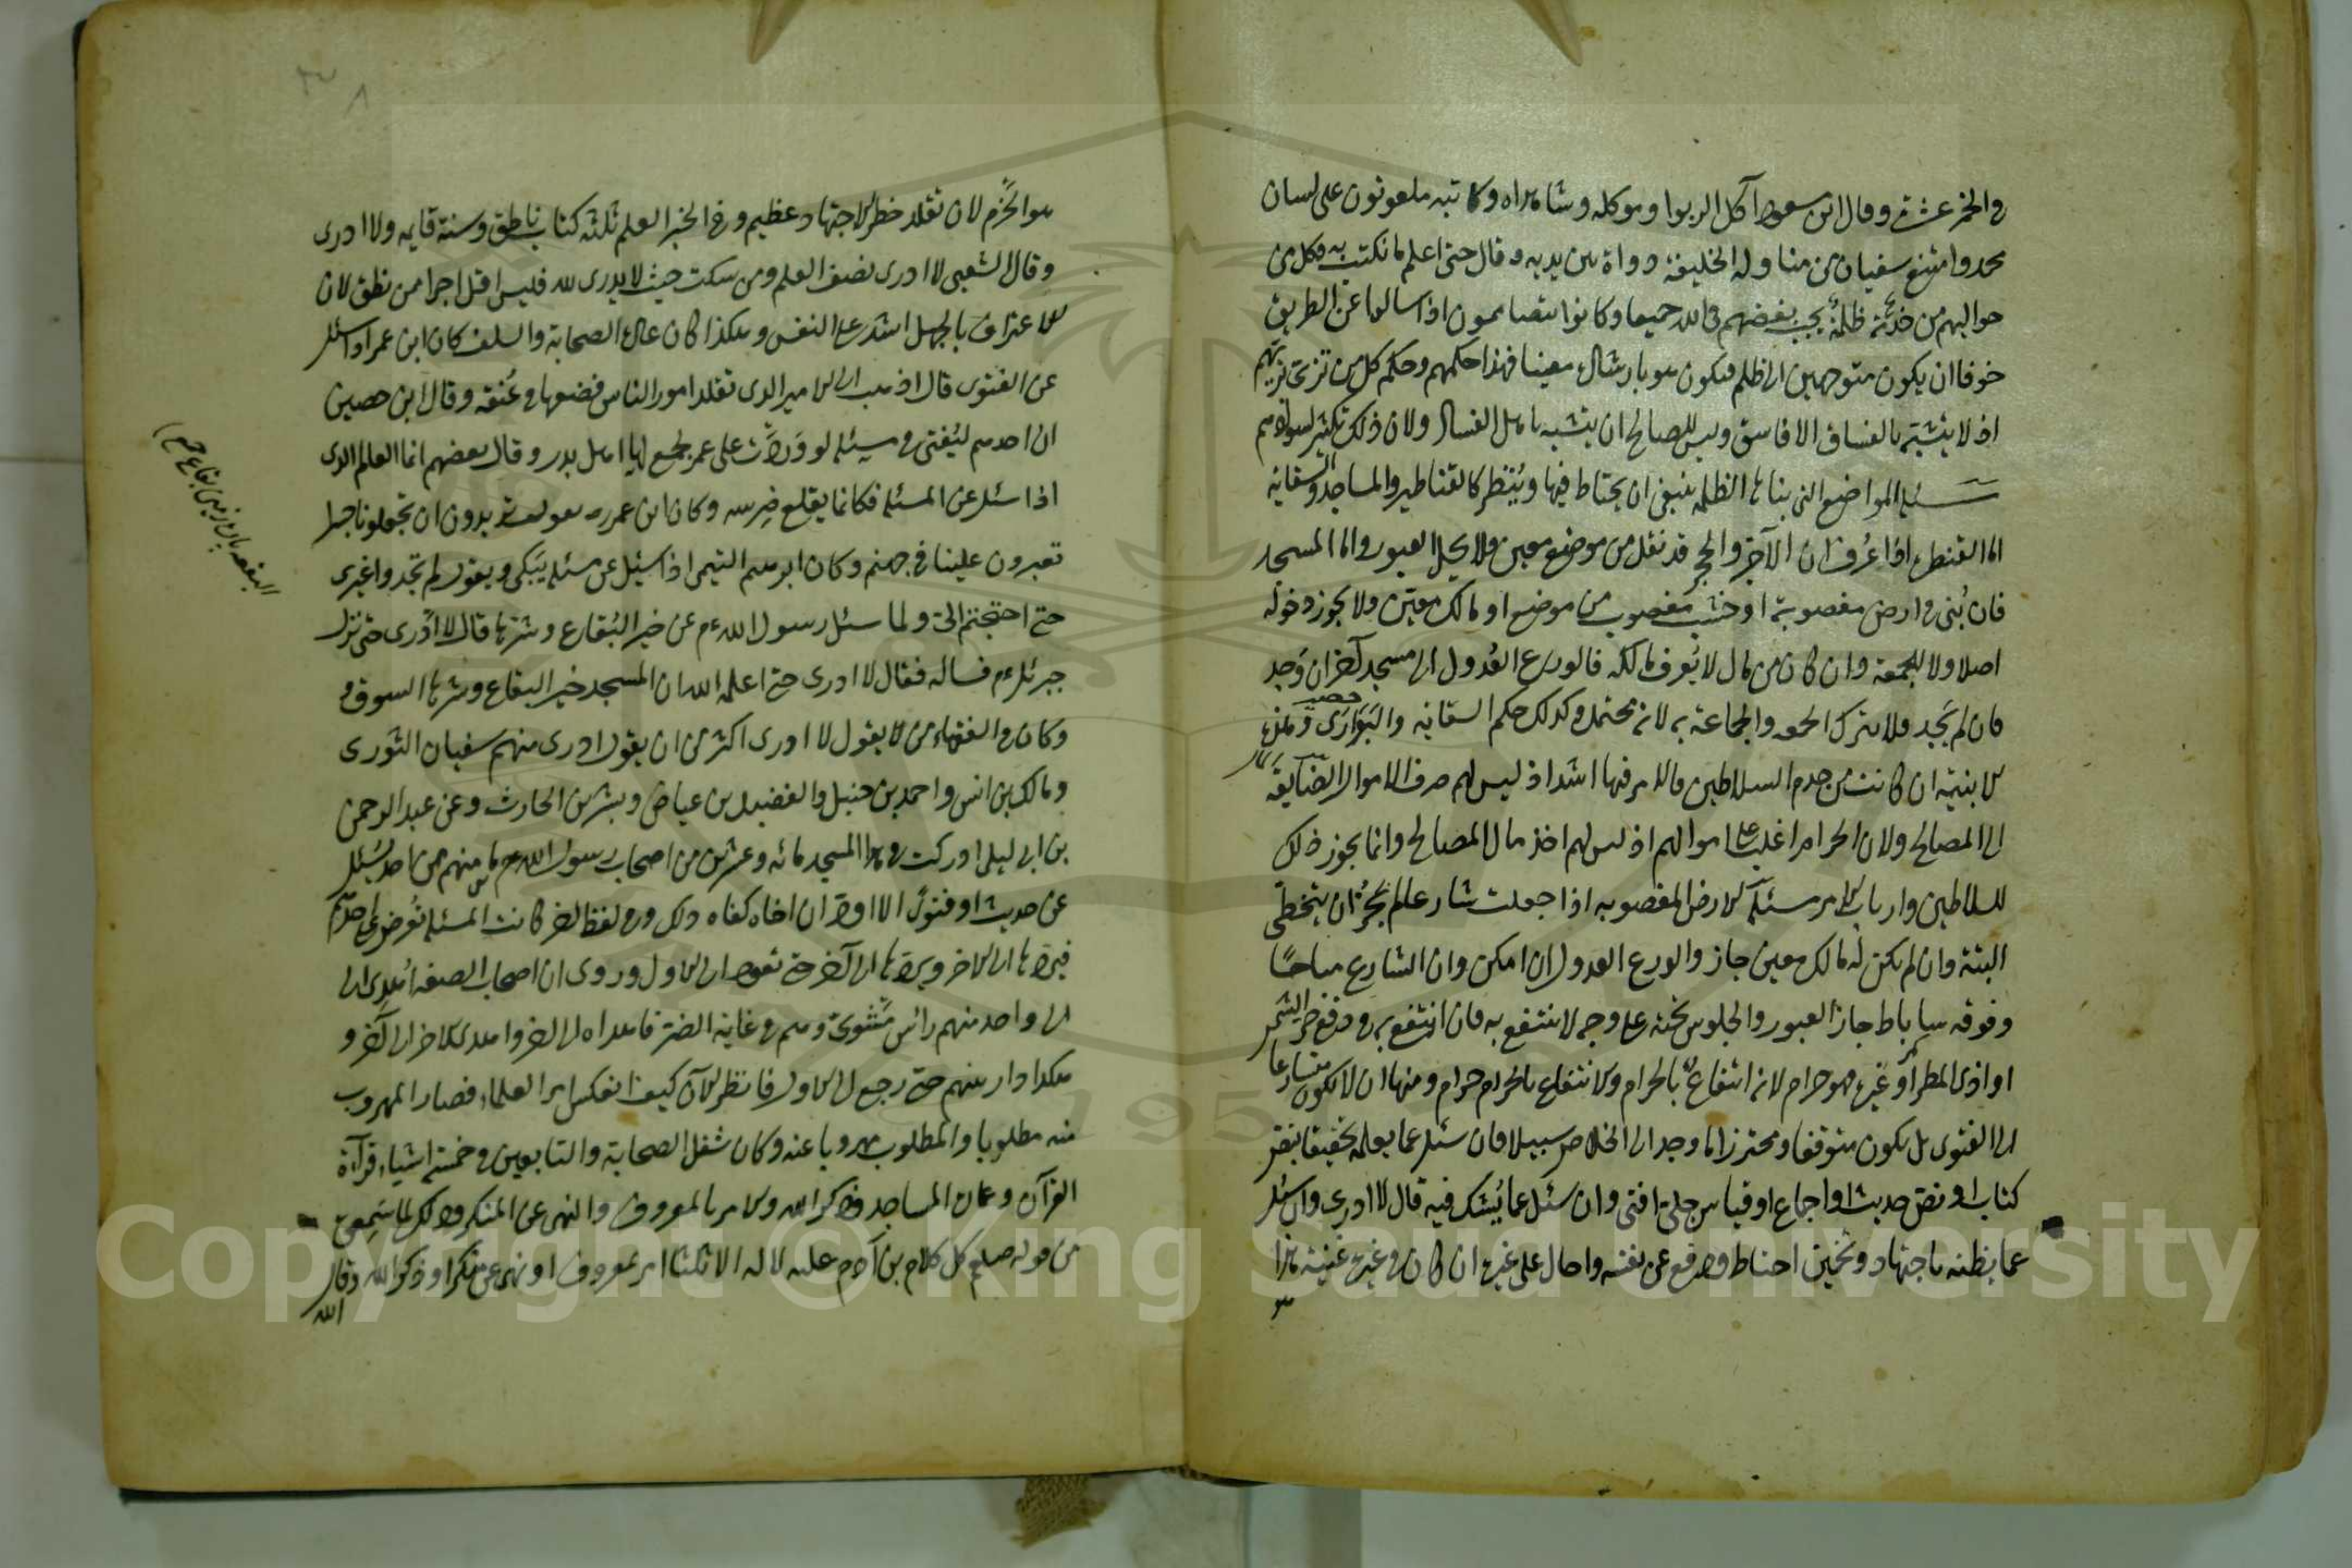 في الخمر عشرة وقال ابن مسعود آكل الربوا وموكله وشاهداه وكاتبه ملعونون على لسان
محمد وامتنع سفيان من مناولة الخليفة دواة بين يديه وقال حتى اعلم ما تكتب به فكل من
حواليهم من خدمة ظلمة يجب بغضهم في الله جميعا وكانوا يتصاممون اذا سالوا عن الطريق
خوفا ان يكون متوجهين الى ظلم فيكون هو بارشاله معينا فهذا حكمهم وحكم كل من تزيّى بزيهم
اذ لا يتشبه بالفساق الا فاسق وليس للصالح ان يتشبه باهل الفساد ولان ذلك تكثير لسوادهم
مسئلة المواضع التى بناها الظلمة ينبغى ان يحتاط فيها ويُنظر كالقناطير والمساجد والسقاية
اما القنطرة اذا عُرف ان الآجر والحجر قد نقل من موضع معين فلا يحل العبور واما المسجد
فان بُنى في ارض مغصوبة او خشب مغصوب من موضع او مالك معيّن ولا يجوز دخوله
اصلا ولا للجمعة وان كان من مال لا يُعرف مالكه فالورع العُدول الى مسجد آخر ان وَجد
فان لم يَجِد فلا يترك الجمعة والجماعة به لانه محتمل وكذلك حكم السقاية والبَوَارى
حصير
الابنية ان كانت من خدم السلاطين فالامر فيها اشد اذ ليس لهم صرف الاموال الضايعة
الى المصالح ولان الحرام اغلب على اموالهم اذ ليس لهم اخذ مال المصالح وانما يجوز ذلك
للسلاطين وارباب الامر مسئلة الارض المغصوبه اذا جعلت شارعا لم يَجُز ان يتخطى
البتة وان لم يكن له مالك معين جاز والورع العدول ان امكن وان الشارع مباحًا
وفوقه ساباط جاز العبور والجلوس تحته على وجه لا ينتفع به فان انتفع به في دفع حر الشمس
او اذى المطر او غيره فهو حرام لانه انتفاع بالحرام والانتفاع بالحرام حرام ومنها ان لا يكون متسارعا
الى الفتوى بل يكون متوقفا ومحترزا ما وجد الى الخلاص سبيلا فان سئل عما يعلمه تحقيقا بنص
كتاب او نص حديث او اجماع او قياس جلىّ افتى وان سئل عما يُشك فيه قال لا ادرى وان سئل
عما يظنه باجتهاد وتخمين احتاط ودفع عن نفسه واحال على غيره ان كان في غيره غنية هذا
هو
هو الحَزم لان تقلد خطر الاجتهاد عظيم وفي الخبر العلم ثلثة كتاب ناطق وسنة قايمه ولا ادرى
وقال الشعبى لا ادرى نصف العلم ومن سكت حيث لا يدرى لله فليس اقل اجرا ممن نطق لان
الاعتراف بالجهل اشد على النفس وهكذا كان عادة الصحابة والسلف كان ابن عمر اذا سئل
عن الفتوى قال اذهب الى الامير الذى تقلد امور الناس فضعها في عُنقه وقال ابن حصين
ان احدهم ليُفتى في مسئلة لو وَردت على عمر لجمع لها اهل بدر وقال بعضهم انما العالم الذى
اذا سئل عن المسئلة فكانما يقلع ضرسه وكان ابن عمر رض يقول تريدون ان تجعلونا جسرا
تعبرون علينا في جهنم وكان ابرهيم التيمى اذا سئل عن مسئلة يَبكى ويقول لم تجدوا غيرى
حتى احتجتم الىّ ولما سئل رسول الله ءم عن خير البُقاع وشرّها قال لا ادْرى حتى نزل
جبرئل ءم فساله فقال لا ادرى حتى اعلمه الله ان المسجد خير البقاع وشرها السوق
وكان في الفقهاء من لا يقول لا ادرى اكثر من ان يقول ادرى منهم سفيان الثورى
ومالك بن انس واحمد بن حنبل والفضيل بن عياض وبشر بن الحارث وعن عبد الرحمن
بن ابى ليلى ادركت في هذا المسجد مائه وعشرين من اصحاب رسول الله ءم ما منهم من احد يسئل
عن حديث او فتوىً الا اودّ ان اخاه كفاه ذلك وفي لفظ اخر كانت المسئلة تُعرض على احدهم
فيردّها الى الاخر ويردّها الى آخر حتى تعود الى الاول وروى ان اصحاب الصفه اُهْدِى الى
الى واحد منهم رأس مشوىّ وهم في غاية الضرّ فاهداه الى اخر واهدى الاخر الى آخر و
هكذا دار بينهم حتى رجع الى الاول فانظر الآن كيف انعكس امر العلماء فصار المهروب
منه مطلوبا والمطلوب مهروبا عنه وكان شغل الصحابة والتابعين في خمسة اشياء قرآءة
القرآن وعمارة المساجد وذكر الله والامر بالمعروف والنهى عن المنكر وذلك لما سَمِعوه
من قوله صلعم كل كلام بن آدم عليه لا له الا ثلثا امر بمعروف او نهى عن منكر او ذكر الله وقال
الله